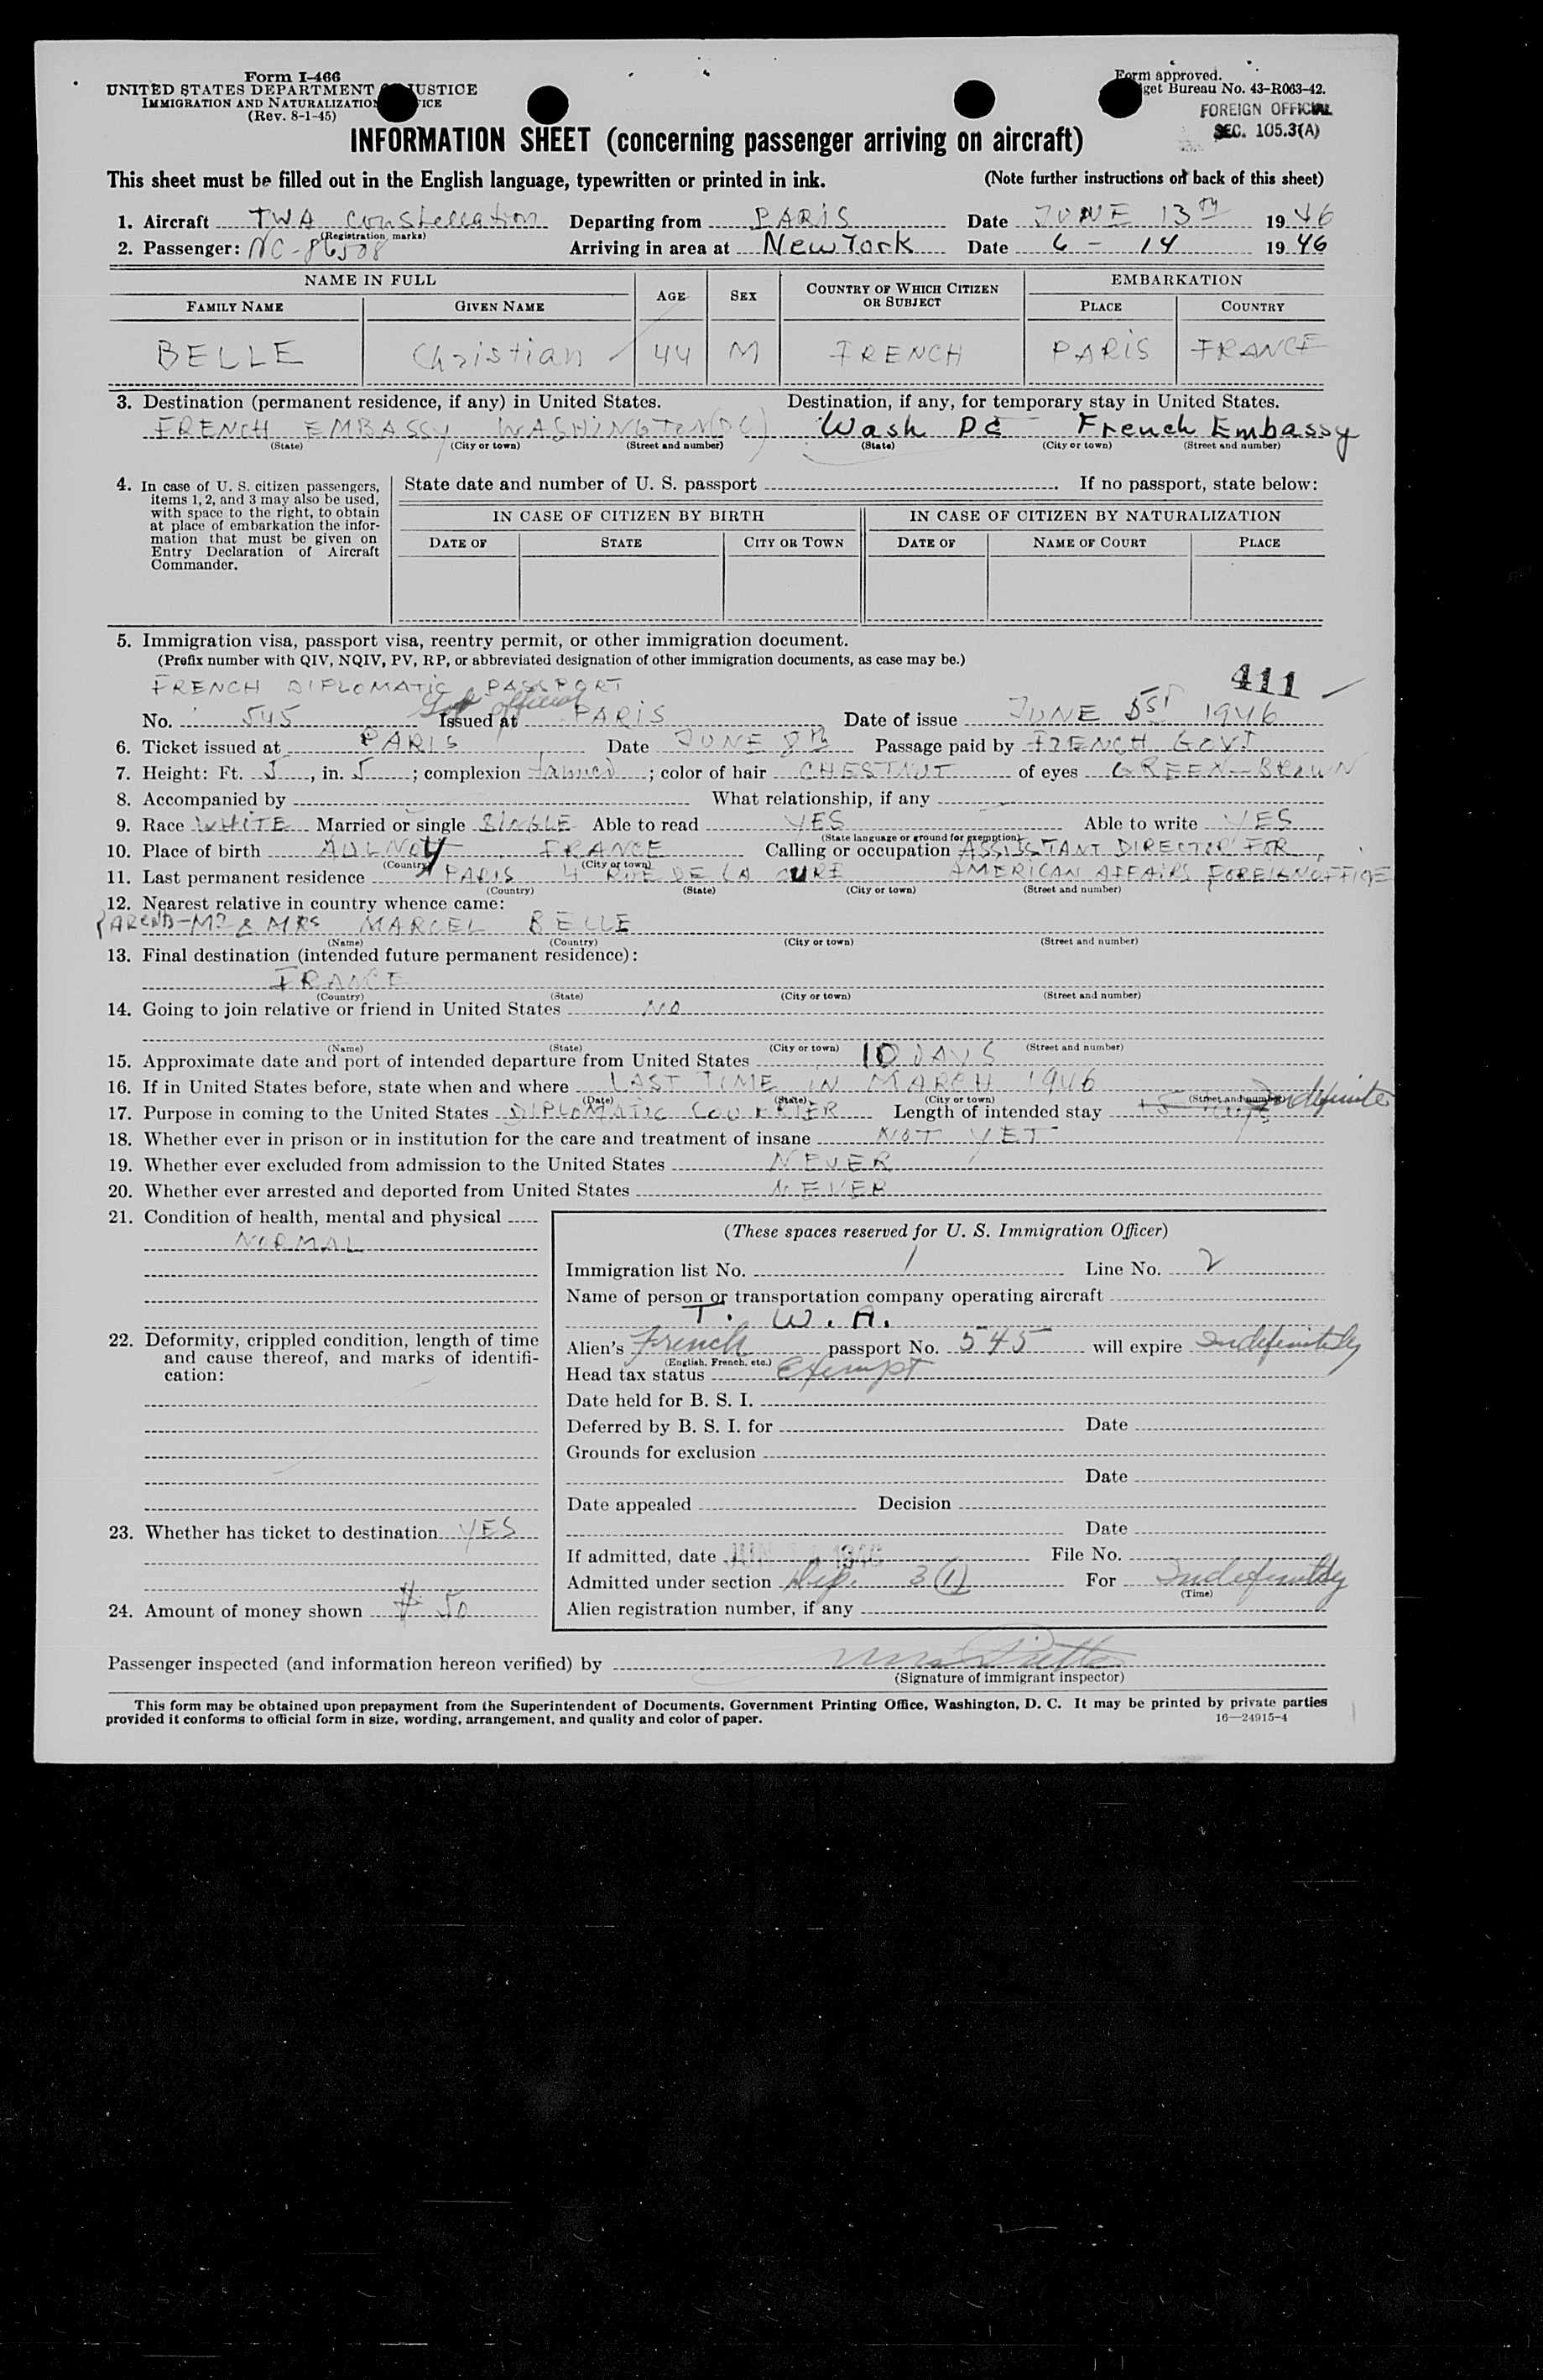 Form I-466
UNITED STATES DEPARTMENT JUSTICE
IMMIGRATION AND NATURALIZATION
(Rev. 8-1-45)
Form approved.
get Bureau No. 43-R063-42.
FOREIGN OFFICIAL
SEC. 105.3(A)
INFORMATION SHEET (concerning passenger arriving on aircraft)
This sheet must be filled out in the English language, typewritten or printed in ink. (Note further instructions on back of this sheet)
1. Aircraft TWA Constellation Departing from PARIS Date JUNE 13TH 1946
(Registration marks)
2. Passenger: NC-86508 Arriving in area at New York Date 6 - 14 1946
NAME IN FULL AGE SEX COUNTRY OF WHICH CITIZEN OR SUBJECT EMBARKATION
FAMILY NAME GIVEN NAME PLACE COUNTRY
BELLE Christian 44 M FRENCH PARIS FRANCE
3. Destination (permanent residence, if any) in United States. Destination, if any, for temporary stay in United States.
FRENCH EMBASSY WASHINGTON (DC) Wash DC French Embassy
(State) (City or town) (Street and number) (State) (City or town) (Street and number)
4. In case of U. S. citizen passengers, items 1, 2, and 3 may also be used, with space to the right, to obtain at place of embarkation the information that must be given on Entry Declaration of Aircraft Commander.
State date and number of U. S. passport . If no passport, state below:
IN CASE OF CITIZEN BY BIRTH IN CASE OF CITIZEN BY NATURALIZATION
DATE OF STATE CITY OR TOWN DATE OF NAME OF COURT PLACE
5. Immigration visa, passport visa, reentry permit, or other immigration document.
(Prefix number with QIV, NQIV, PV, RP, or abbreviated designation of other immigration documents, as case may be.)
411
FRENCH DIPLOMATIC PASSPORT
Gov official
No. 545 Issued at PARIS Date of issue JUNE 5ST 1946
6. Ticket issued at PARIS Date JUNE 8TH Passage paid by FRENCH GOVT
7. Height: Ft. 5, in. 5; complexion tanned; color of hair CHESTNUT of eyes GREEN-BROWN
8. Accompanied by What relationship, if any
9. Race WHITE Married or single SINGLE Able to read YES Able to write YES
(State language or ground for exemption)
10. Place of birth AULNOY FRANCE Calling or occupation ASSISTANT DIRECTOR FOR
(Country) (City or town)
11. Last permanent residence PARIS 4 RUE DE LA CURE AMERICAN AFFAIRS FOREIGN OFFICE
(Country) (State) (City or town) (Street and number)
12. Nearest relative in country whence came:
PARENTS-MR & MRS MARCEL BELLE
(Name) (Country) (City or town) (Street and number)
13. Final destination (intended future permanent residence):
FRANCE
(Country) (State) (City or town) (Street and number)
14. Going to join relative or friend in United States NO
(Name) (State) (City or town) (Street and number)
15. Approximate date and port of intended departure from United States 10 DAYS
16. If in United States before, state when and where LAST TIME IN MARCH 1946
(Date) (State) (City or town) (Street and number)
17. Purpose in coming to the United States DIPLOMATIC COURRIER Length of intended stay Indefinite
18. Whether ever in prison or in institution for the care and treatment of insane NOT YET
19. Whether ever excluded from admission to the United States NEVER
20. Whether ever arrested and deported from United States NEVER
21. Condition of health, mental and physical
NORMAL
22. Deformity, crippled condition, length of time and cause thereof, and marks of identification:
23. Whether has ticket to destination YES
24. Amount of money shown $ 50
(These spaces reserved for U. S. Immigration Officer)
Immigration list No. 1 Line No. 2
Name of person or transportation company operating aircraft
T. W. A.
Alien's French passport No. 545 will expire Indefinitely
(English, French, etc.)
Head tax status Exempt
Date held for B. S. I.
Deferred by B. S. I. for Date
Grounds for exclusion
Date
Date appealed Decision
Date
If admitted, date JUN 14 1946 File No.
Admitted under section Dip. 3(1) For Indefinitely
(Time)
Alien registration number, if any
Passenger inspected (and information hereon verified) by
(Signature of immigrant inspector)
This form may be obtained upon prepayment from the Superintendent of Documents, Government Printing Office, Washington, D. C. It may be printed by private parties
provided it conforms to official form in size, wording, arrangement, and quality and color of paper. 16—24915-4